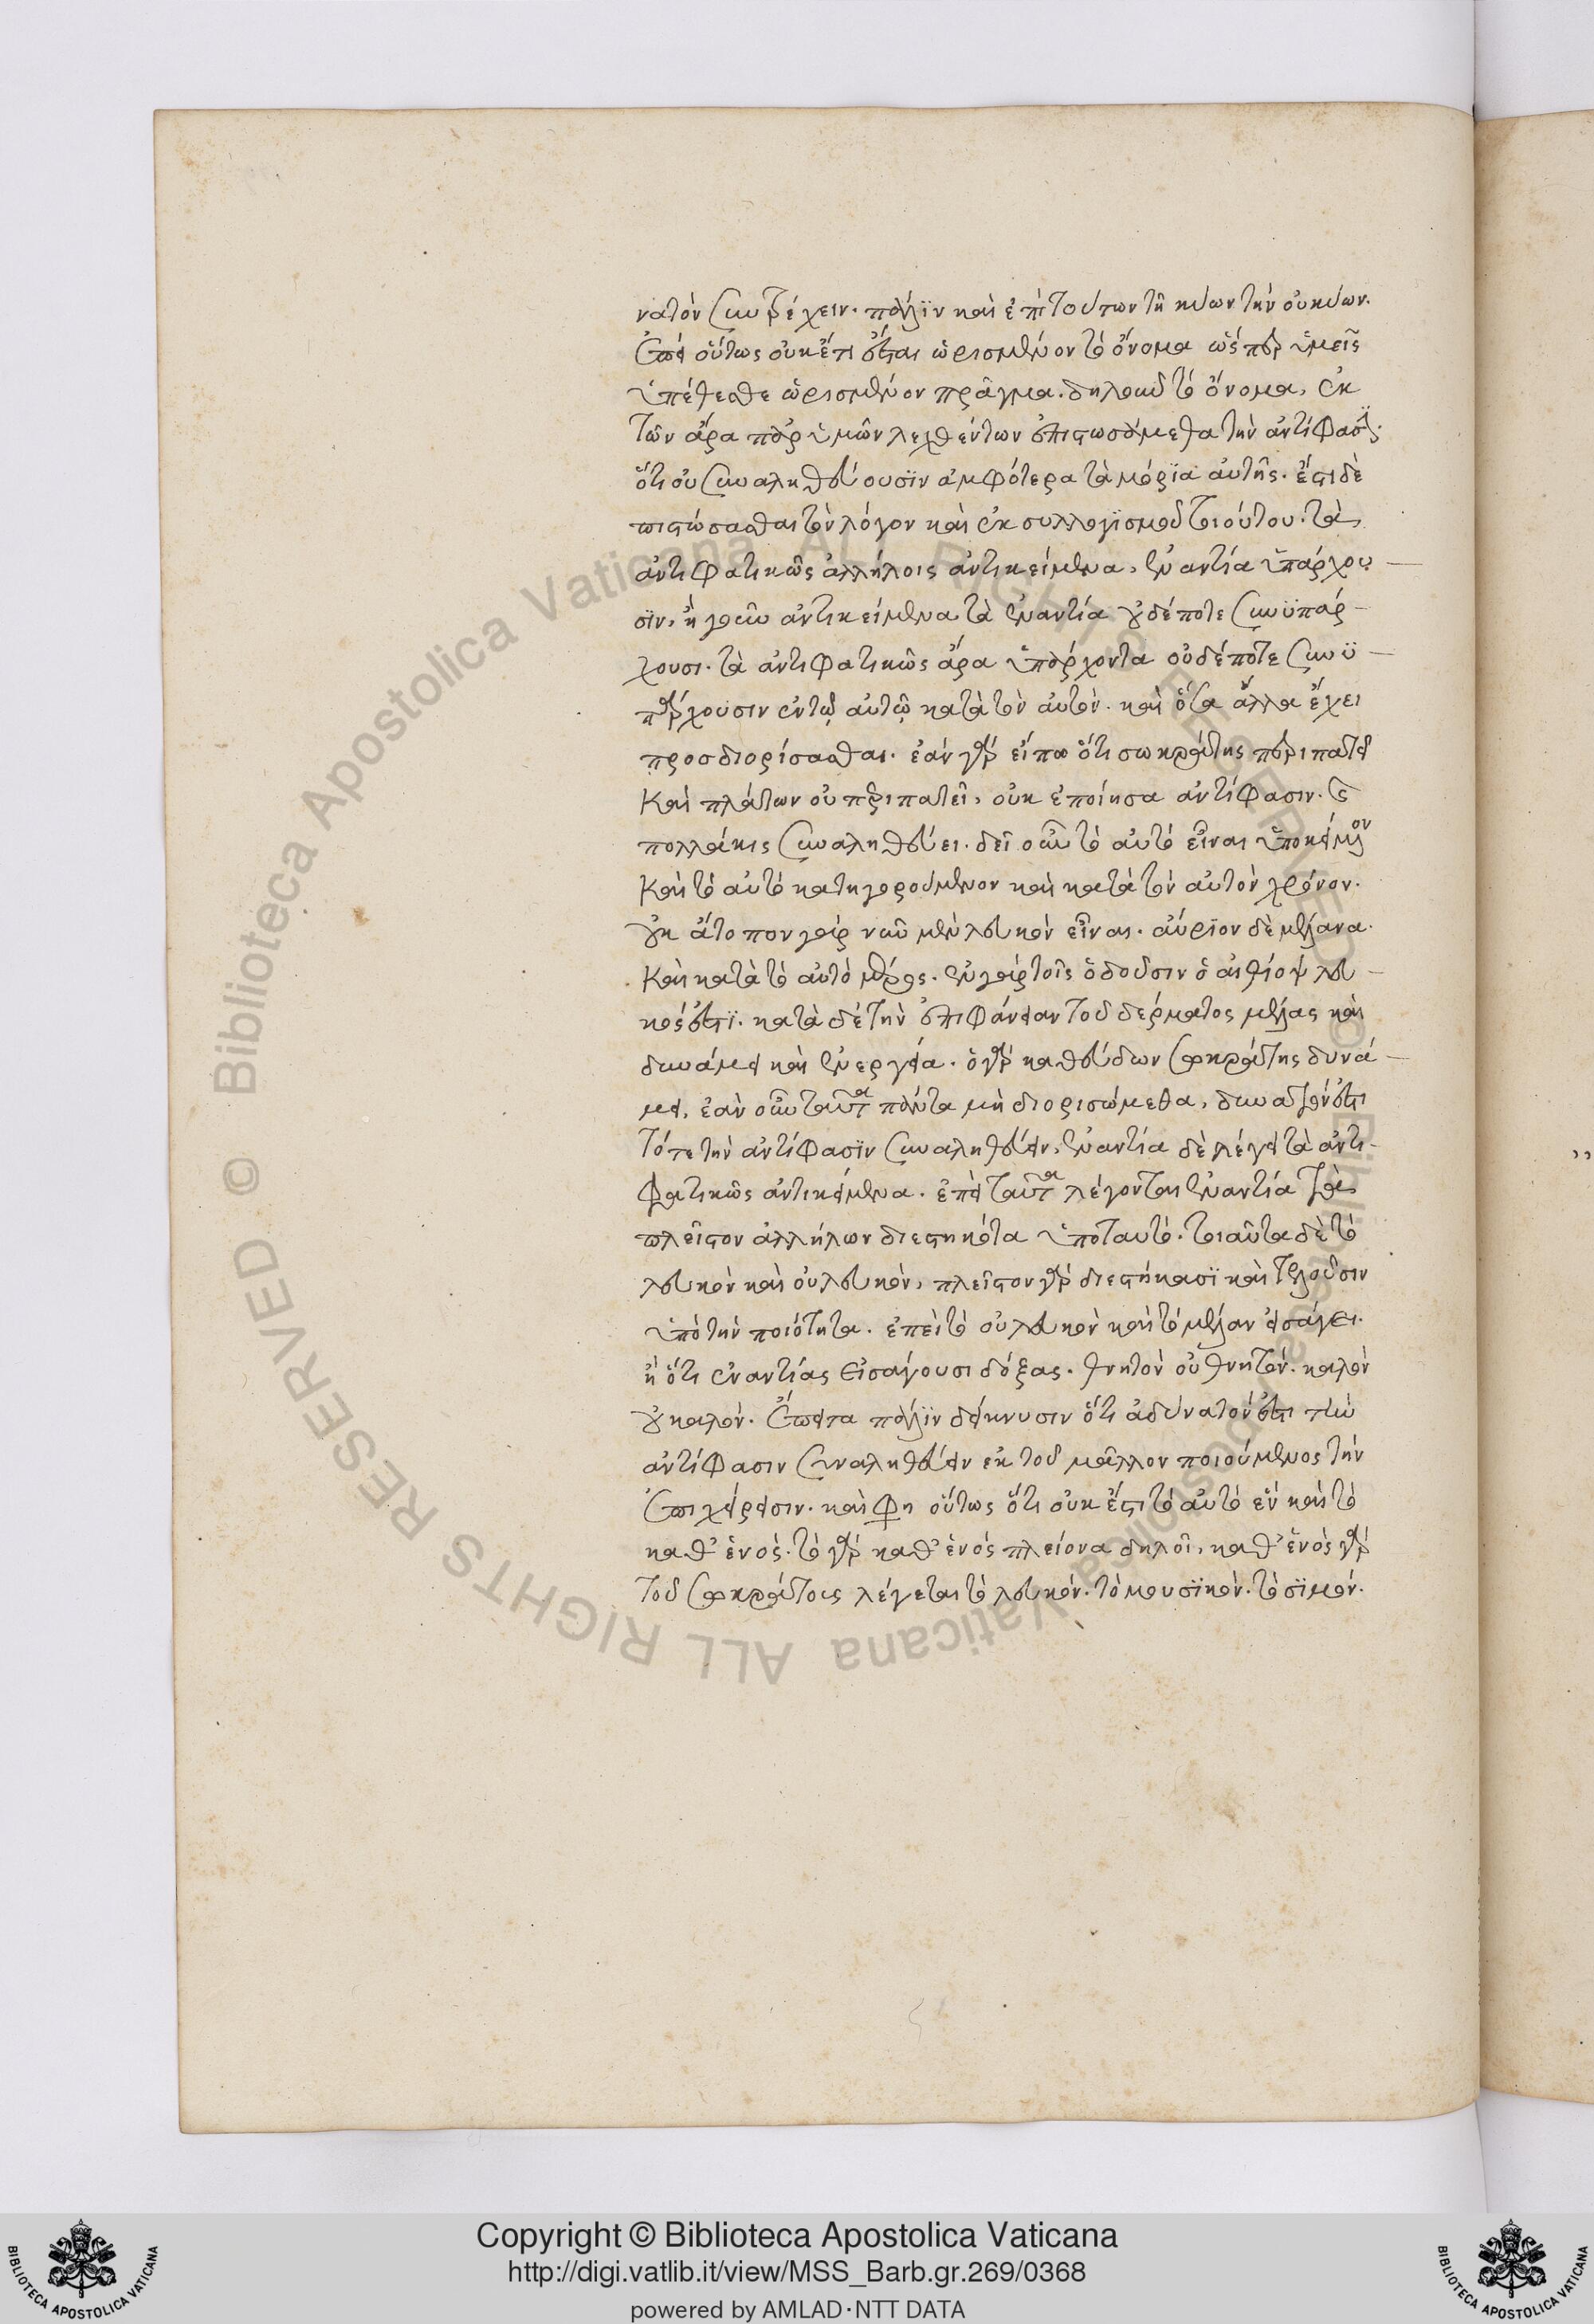 νατὸν συντρέχειν. πάλϊν καὶ ἐπὶ τούτων τῆ κύων τὴν οὐκύων.
ἐπεὶ οὕτως οὐκέτι ἔσται ὡρισμένον τὸ ὄνομα ὥσπερ ὑμεῖς
ὑπέθεσθε ὡρισμένον πρᾶγμα. δηλοῦν τὸ ὄνομα, ἐκ
τῶν ἄρα παρ' ὑμῶν λεχθέντων ἐπιστωσάμεθα τὴν ἀντίφασϊν.
ὅτι οὐ συναληθεύουσϊν ἀμφότερα τὰ μόρϊα αὐτῆς. ἔστι δὲ
πιστώσασθαι τὸν λόγον καὶ ἐκ συλλογϊσμοῦ τοιούτου. τὰ
ἀντιφατικῶς ἀλλήλοις ἀντικείμενα, ἐναντία ὑπάρχου
σϊν, ἢ γοῦν ἀντικείμενα τὰ ἐναντία οὐδέποτε συνϋπάρ
χουσι. τὰ ἀντιφατικῶς ἄρα ὑπάρχοντα οὐδέποτε συνϋ
πάρχουσιν ἐν τῷ αὐτῷ κατὰ τὸν αὐτὸν. καὶ ὅσα ἄλλα ἔχει
προσδιορίσασθαι. ἐάν γὰρ εἴπω ὅτι σωκράτης περιπατεῖ
Καὶ πλάτων οὐ περιπατεῖ, οὐκ ἐποίησα ἀντίφασιν.
πολλάκις συναληθεύει. δεῖ οὖν τὸ αὐτὸ εἶναι ὑποκείμενον
Καὶ τὸ αὐτὸ κατηγορούμενον καὶ κατὰ τὸν αὐτὸν χρόνον.
οὐκ ἄτοπον γάρ νῦν μὲν λευκὸν εἶναι. αὔρϊον δὲ μέλανα.
Καὶ κατὰ τὸ αὐτὸ μέρος. ἐν γάρ τοῖς ὀδοῦσιν ὁ αἰθίοψ λευ
κός ἐστϊ. κατὰ δέ τὴν ἐπιφάνειαν τοῦ δέρματος μέλας καὶ
δυνάμει καὶ ἐνεργεία. ὁ γὰρ καθεύδων σωκράτης δυνά
μει, ἐὰν οὖν ταῦτα πάντα μὴ διορισώμεθα, δυνατόν ἐστι
τότε τὴν ἀντίφασϊν συναληθεύειν, ἐναντία δὲ λέγει τὰ ἀντι
φατικῶς ἀντικείμενα. ἐπεὶ ταῦτα λέγονται ἐναντία τὰ
πλεῖστον ἀλλήλων διεστηκότα ὑπὸ ταυτὸ. τοιαῦτα δὲ τὸ
λευκὸν καὶ οὐ λευκὸν, πλεῖστον γὰρ διεστήκασϊ καὶ τελοῦσιν
ὑπὸ τὴν ποιότητα. ἐπεὶ τὸ οὐ λευκὸν καὶ τὸ μέλαν εἰσάγει.
ἢ ὅτι ἐναντίας εἰσάγουσι δόξας. θνητὸν οὐ θνητὸν. καλὸν
οὐ καλὸν. ἔπειτα πάλϊν δείκνυσιν ὅτι ἀδύνατόν ἐστι τὴν
ἀντίφασιν συναληθεύειν ἐκ τοῦ μᾶλλον ποιούμενος τὴν
ἐπιχείρησιν. καὶ φη οὕτως ὅτι οὐκ ἔστι τὸ αὐτὸ ἓν καὶ τὸ
καθ' ἑνὸς. τὸ γὰρ καθ' ἑνός πλείονα δηλοῖ, καθ' ἑνὸς γὰρ
τοῦ σωκράτους λέγεται τὸ λευκὸν. τὸ μουσϊκὸν. τὸ σϊμὸν.
Copyright © Biblioteca Apostolica Vaticana
http://digi.vatlib.it/view/MSS_Barb.gr.269/0368
powered by AMLAD·NTT DATA